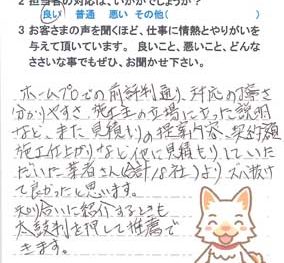 2 担当者の対応は、いかがでしょうか？
（良い　普通　悪い　その他（　　　　　　　）
3 お客さまの声を聞くほど、仕事に情熱とやりがいを
与えて頂いています。 良いこと、悪いこと、どんな
ささいな事でもぜひ、お聞かせ下さい。
ホームプロでの前評判通り、対応の丁寧さ
分かりやすさ、施工主の立場に立った説明
など、また見積もりの提案内容、契約額
施工仕上がりなど他に見積もりしていた
だいた業者さん(合計八社)よりズバ抜け
て良かったと思います。
知り合いに紹介するときも
太鼓判を押して推薦で
きます。